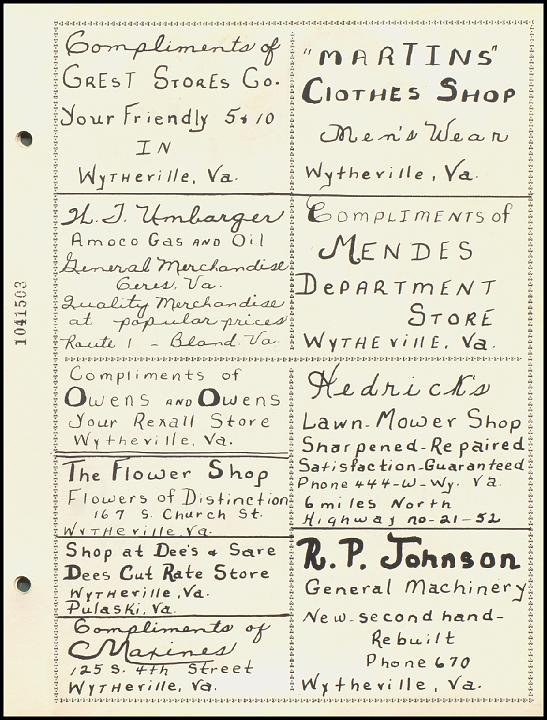 Compliments of
GREST STORES Co.
Your Friendly 5 & 10
IN
Wytheville, Va.
H. T. Umbarger
Amoco Gas AND Oil
General Merchandise
Ceres, Va.
Quality Merchandise
at popular prices
Route 1 - Bland, Va.
Compliments of
Owens AND Owens
Your Rexall Store
Wytheville, Va.
The Flower Shop
Flowers of Distinction
167 S. Church St.
Wytheville, Va.
Shop at Dee's & Save
Dees Cut Rate Store
Wytheville, Va.
Pulaski, Va.
Compliments of
Maxines
125 S. 4th Street
Wytheville, Va.
"MARTINS"
Clothes Shop
Men's Wear
Wytheville, Va.
Compliments of
MENDES
DePARTMENT
STORE
Wytheville, Va.
Hedrick's
Lawn-Mower Shop
Sharpened-Repaired
Satisfaction-Guaranteed
Phone 444-W-Wy. Va.
6 miles North
Highway no-21-52
R. P. Johnson
General Machinery
New-second hand-
Rebuilt
Phone 670
Wytheville, Va.
1041503